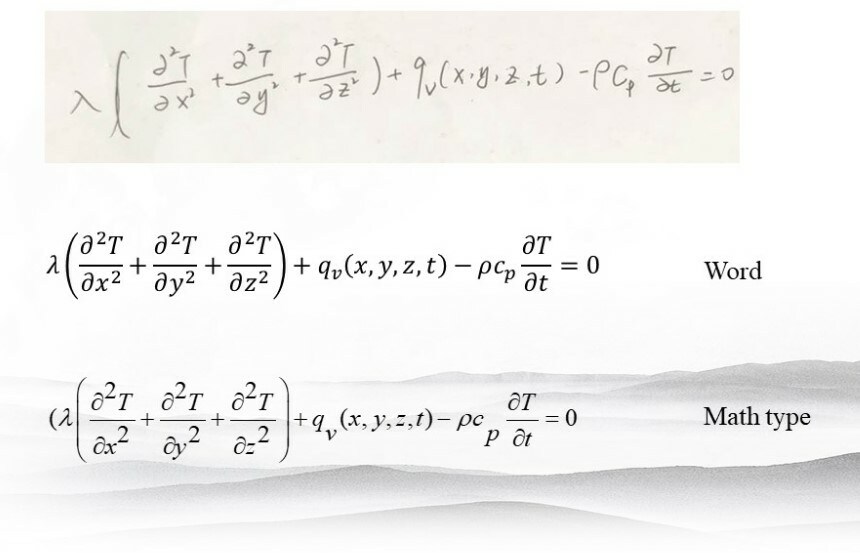 λ(∂²T/∂x² + ∂²T/∂y² + ∂²T/∂z²) + qᵥ(x,y,z,t) − ρcₚ ∂T/∂t = 0
λ(∂²T/∂x² + ∂²T/∂y² + ∂²T/∂z²) + qᵥ(x, y, z, t) − ρcₚ ∂T/∂t = 0 Word
(λ(∂²T/∂x² + ∂²T/∂y² + ∂²T/∂z²) + qᵥ(x, y, z, t) − ρcₚ ∂T/∂t = 0 Math type